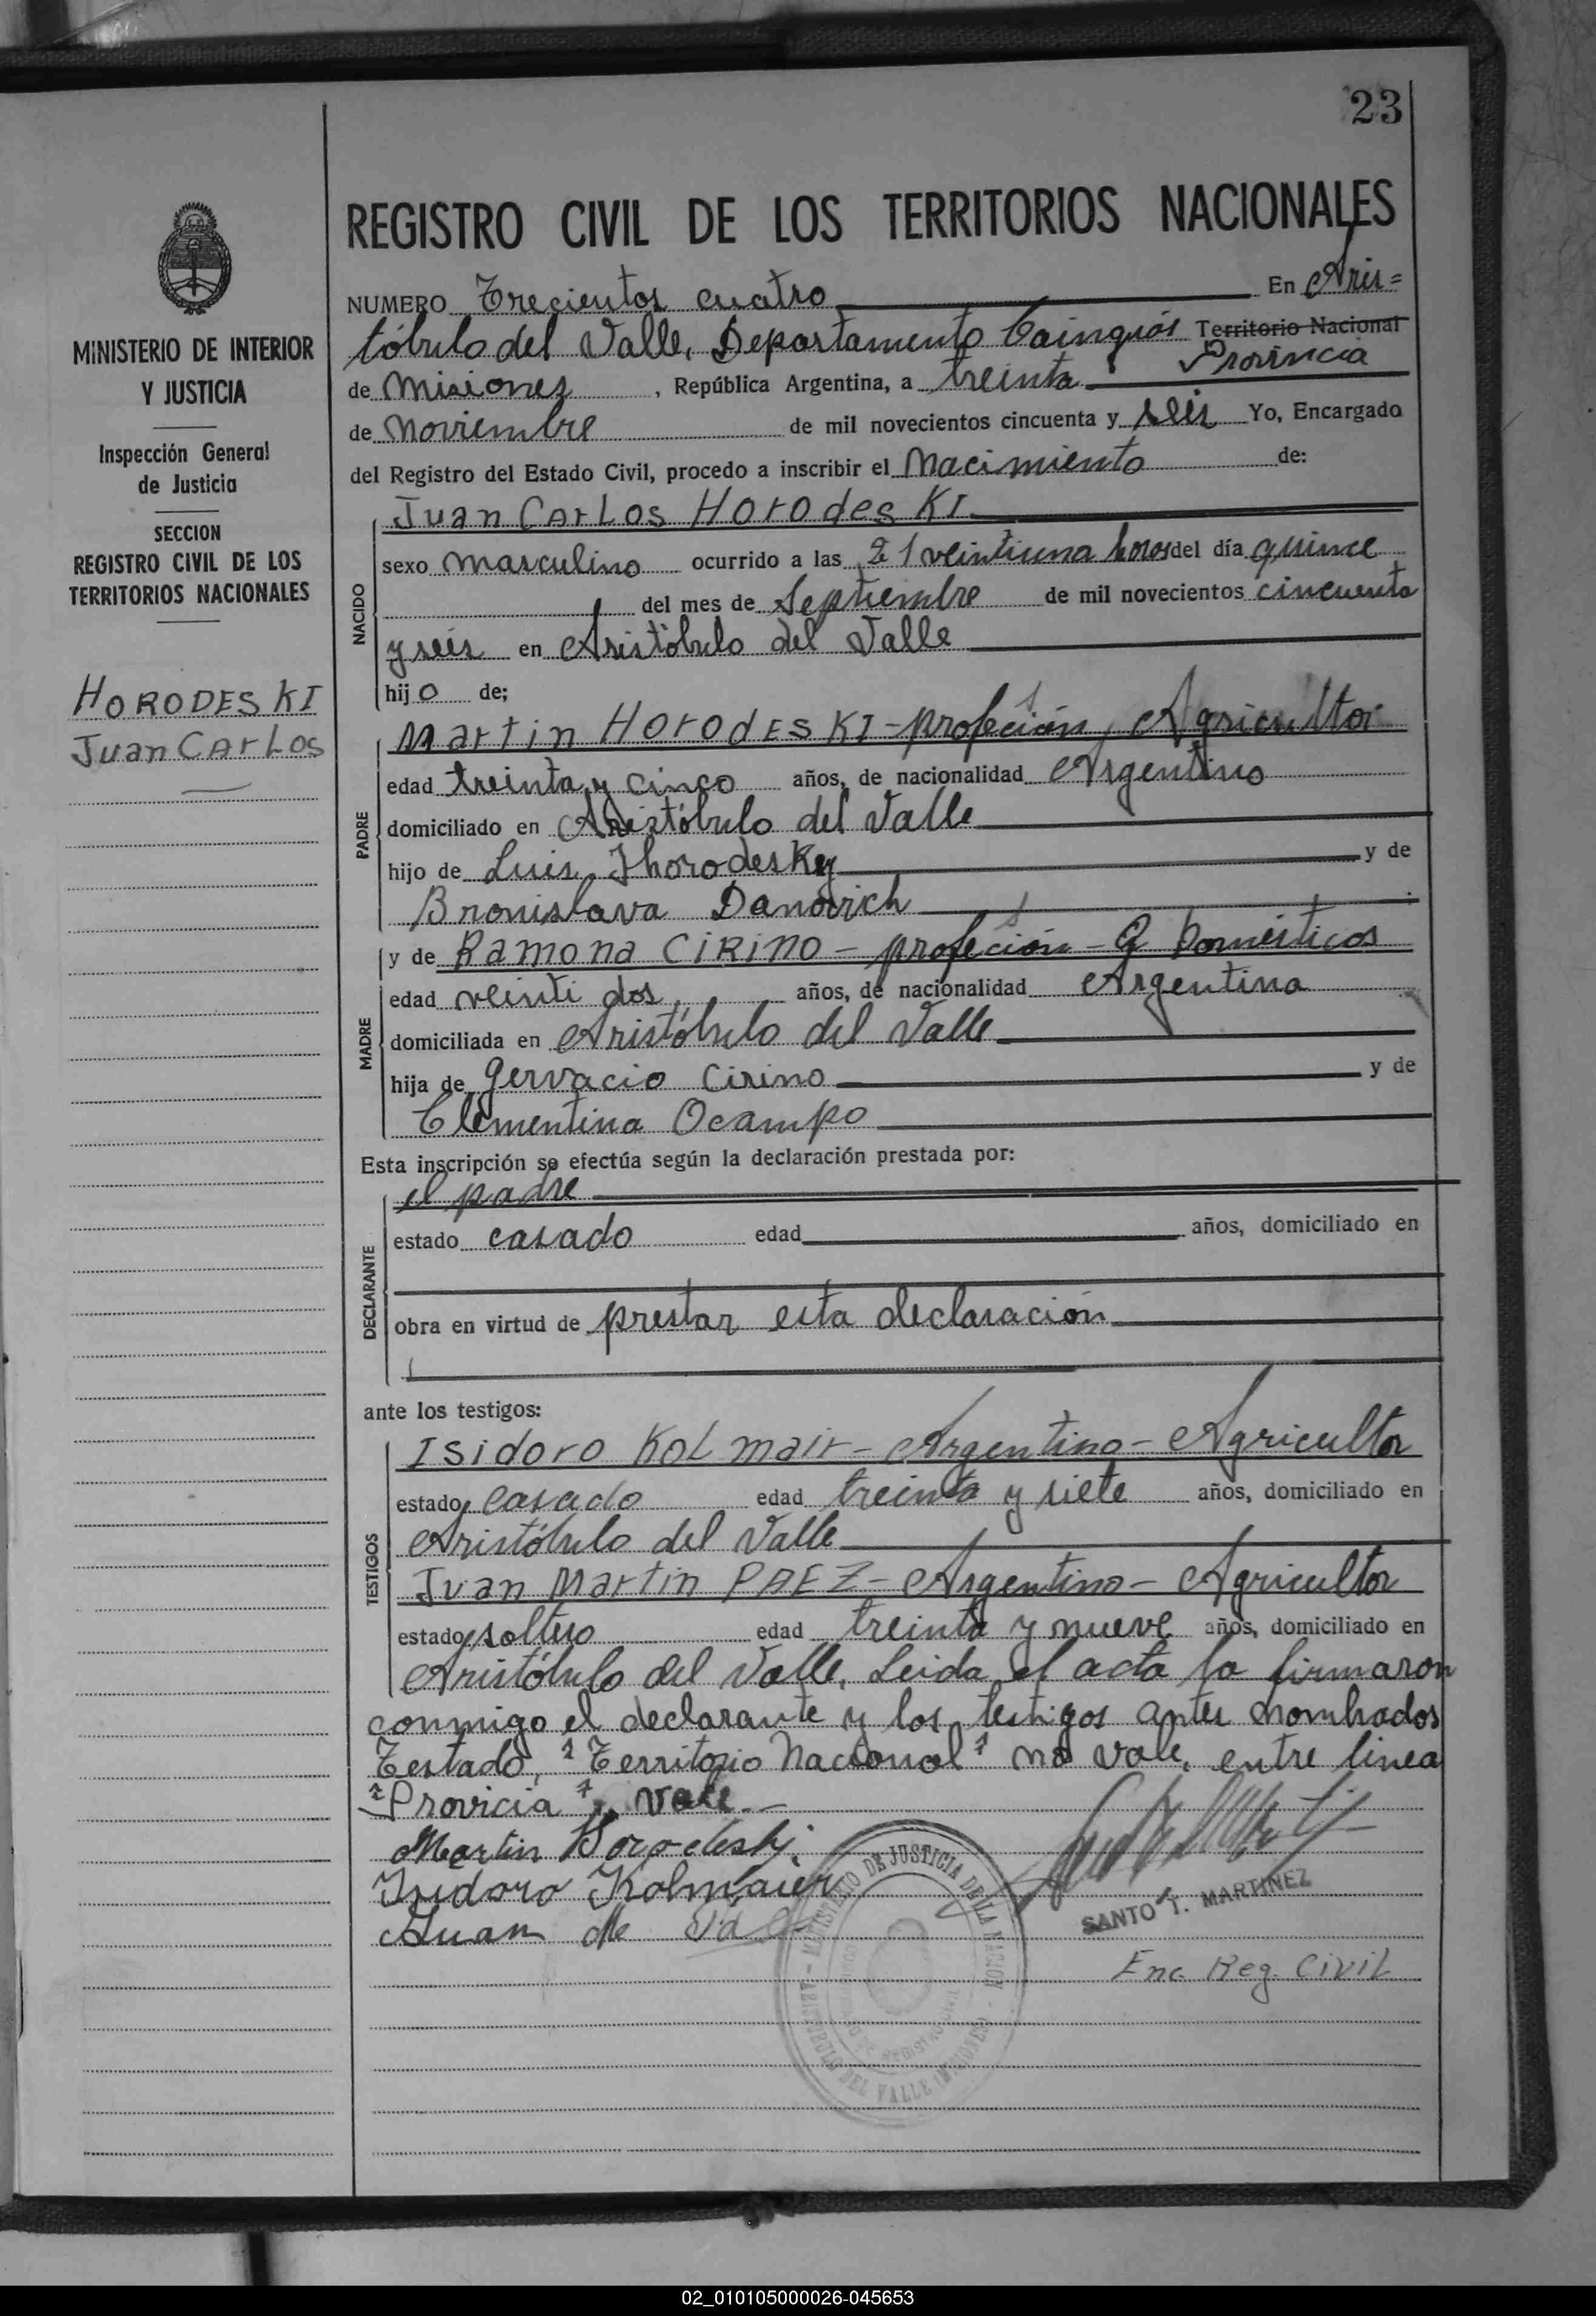 23
MINISTERIO DE INTERIOR
Y JUSTICIA
Inspección General
de Justicia
SECCION
REGISTRO CIVIL DE LOS
TERRITORIOS NACIONALES
HORODESKI
Juan Carlos
REGISTRO CIVIL DE LOS TERRITORIOS NACIONALES
NUMERO Trecientos cuatro En Aris=
tóbulo del Valle, Departamento Cainguás Territorio Nacional
Provincia
de Misiones, República Argentina, a treinta
de Noviembre de mil novecientos cincuenta y seis Yo, Encargado
del Registro del Estado Civil, procedo a inscribir el Nacimiento de:
NACIDO
Juan Carlos HorodesKI
sexo masculino ocurrido a las 21 veintiuna horas del día quince
del mes de Septiembre de mil novecientos cincuenta
y seis en Aristóbulo del Valle
hijo de;
PADRE
Martin HorodESKI - profeción, Agricultor
edad treinta y cinco años, de nacionalidad Argentino
domiciliado en Aristóbulo del Valle
hijo de Luis Jhorodesky y de
Bronislava Danovich
MADRE
y de Ramona CIRINO - profeción - Q Domésticos
edad veinti dos, años, de nacionalidad Argentina
domiciliada en Aristóbulo del Valle
hija de Gervacio Cirino y de
Clementina Ocampo
Esta inscripción se efectúa según la declaración prestada por:
DECLARANTE
el padre
estado casado edad años, domiciliado en
obra en virtud de prestar esta declaración
ante los testigos:
TESTIGOS
Isidoro Kolmair - Argentino - Agricultor
estado casado edad treinta y siete años, domiciliado en
Aristóbulo del Valle
Juan Martin PAEZ - Argentino - Agricultor
estado soltero edad treinta y nueve años, domiciliado en
Aristóbulo del Valle. Leida el acta la firmaron
conmigo el declarante y los testigos antes nombrados
Testado, "Territorio Nacional" no vale, entre linea
"Provicia", vale.-
Martin Horodeski.
Isidoro Kolmaier
Juan M
MINISTERIO DE JUSTICIA DE LA NACION
ARISTOBULO DEL VALLE (MISIONES)
DE REGISTRO CIVIL
SANTO T. MARTINEZ
Enc. Reg. Civil
02_010105000026-045653